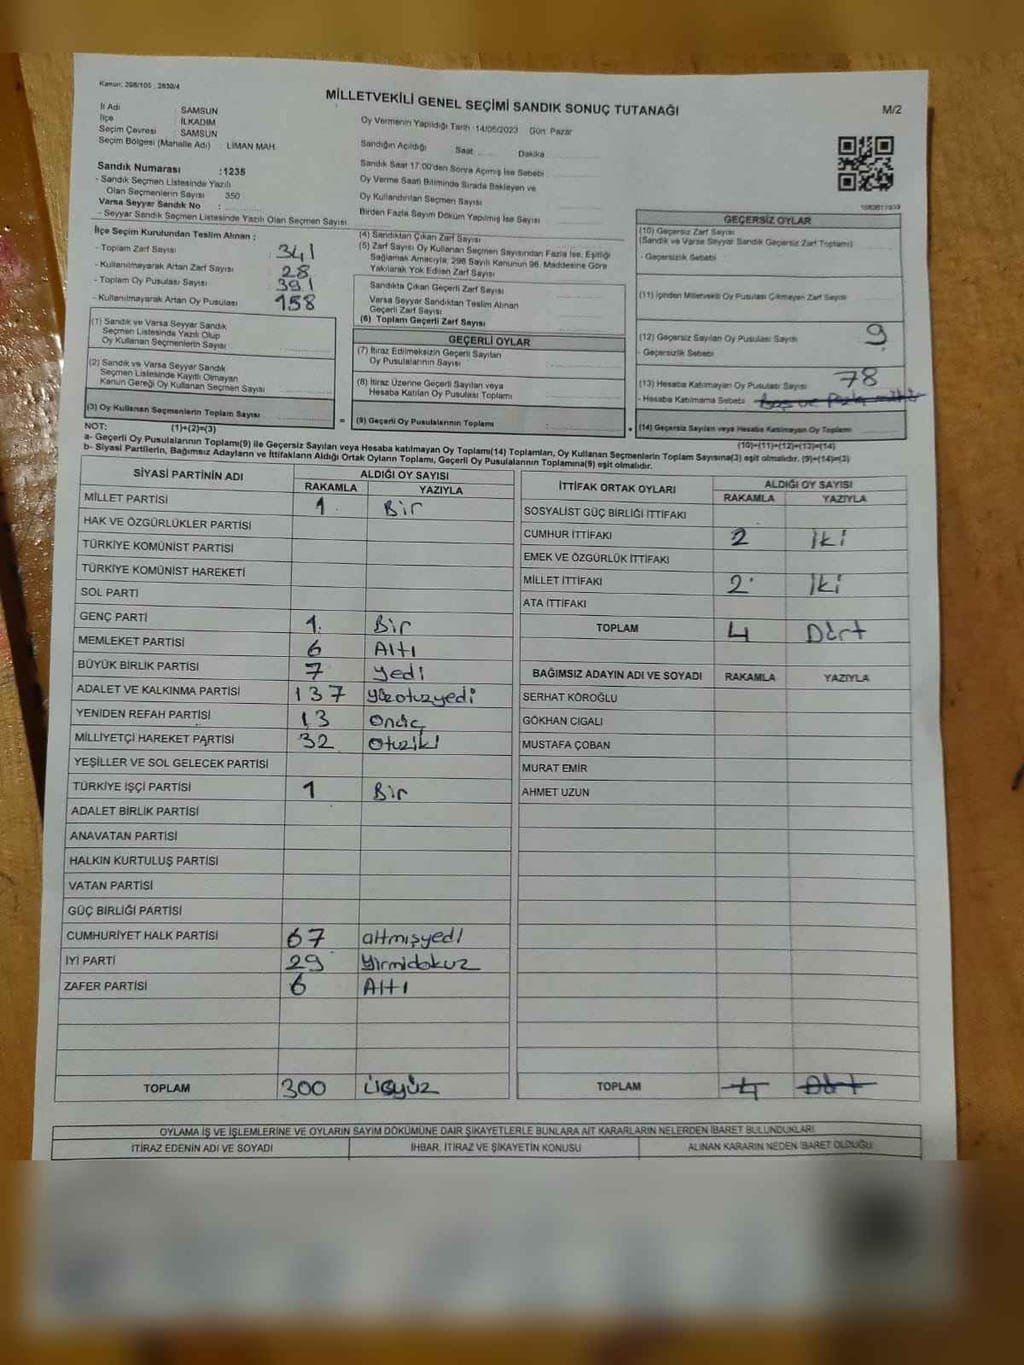 Kanun: 298/105 , 2839/4
MİLLETVEKİLİ GENEL SEÇİMİ SANDIK SONUÇ TUTANAĞI
M/2
İl Adı : SAMSUN
İlçe : İLKADIM
Seçim Çevresi : SAMSUN
Seçim Bölgesi (Mahalle Adı) : LİMAN MAH.
Sandık Numarası :1235
- Sandık Seçmen Listesinde Yazılı
Olan Seçmenlerin Sayısı 350
Varsa Seyyar Sandık No :
- Seyyar Sandık Seçmen Listesinde Yazılı Olan Seçmen Sayısı
İlçe Seçim Kurulundan Teslim Alınan :
- Toplam Zarf Sayısı 341
- Kullanılmayarak Artan Zarf Sayısı 28
- Toplam Oy Pusulası Sayısı 391
- Kullanılmayarak Artan Oy Pusulası 158
(1) Sandık ve Varsa Seyyar Sandık
Seçmen Listesinde Yazılı Olup
Oy Kullanan Seçmenlerin Sayısı
(2) Sandık ve Varsa Seyyar Sandık
Seçmen Listesinde Kayıtlı Olmayan
Kanun Gereği Oy Kullanan Seçmen Sayısı
(3) Oy Kullanan Seçmenlerin Toplam Sayısı
Oy Vermenin Yapıldığı Tarih :14/05/2023 Gün: Pazar
Sandığın Açıldığı Saat Dakika
Sandık Saat 17.00'den Sonra Açımış İse Sebebi
Oy Verme Saati Bitiminde Sırada Bekleyen ve
Oy Kullandırılan Seçmen Sayısı
Birden Fazla Sayım Döküm Yapılmış İse Sayısı
(4) Sandıktan Çıkan Zarf Sayısı
(5) Zarf Sayısı Oy Kullanan Seçmen Sayısından Fazla İse, Eşitliği
Sağlamak Amacıyla; 298 Sayılı Kanunun 98. Maddesine Göre
Yakılarak Yok Edilen Zarf Sayısı
Sandıkta Çıkan Geçerli Zarf Sayısı
Varsa Seyyar Sandıktan Teslim Alınan
Geçerli Zarf Sayısı
(6) Toplam Geçerli Zarf Sayısı
GEÇERLİ OYLAR
(7) İtiraz Edilmeksizin Geçerli Sayılan
Oy Pusulalarının Sayısı
(8) İtiraz Üzerine Geçerli Sayılan veya
Hesaba Katılan Oy Pusulası Toplamı
= (9) Geçerli Oy Pusulalarının Toplamı
GEÇERSİZ OYLAR
(10) Geçersiz Zarf Sayısı
(Sandık ve Varsa Seyyar Sandık Geçersiz Zarf Toplamı)
- Geçersizlik Sebebi
(11) İçinden Milletvekili Oy Pusulası Çıkmayan Zarf Sayısı
(12) Geçersiz Sayılan Oy Pusulası Sayısı 9
- Geçersizlik Sebebi
(13) Hesaba Katılmayan Oy Pusulası Sayısı 78
- Hesaba Katılmama Sebebi
+ (14) Geçersiz Sayılan veya Hesaba Katılmayan Oy Toplamı
NOT: (1)+(2)=(3)
(10)+(11)+(12)+(13)=(14)
a- Geçerli Oy Pusulalarının Toplamı(9) ile Geçersiz Sayılan veya Hesaba katılmayan Oy Toplamı(14) Toplamları, Oy Kullanan Seçmenlerin Toplam Sayısına(3) eşit olmalıdır. (9)+(14)=(3)
b- Siyasi Partilerin, Bağımsız Adayların ve İttifakların Aldığı Ortak Oyların Toplamı, Geçerli Oy Pusulalarının Toplamına(9) eşit olmalıdır.
SİYASİ PARTİNİN ADI ALDIĞI OY SAYISI
RAKAMLA YAZIYLA
MİLLET PARTİSİ 1 Bir
HAK VE ÖZGÜRLÜKLER PARTİSİ
TÜRKİYE KOMÜNİST PARTİSİ
TÜRKİYE KOMÜNİST HAREKETİ
SOL PARTİ
GENÇ PARTİ 1 Bir
MEMLEKET PARTİSİ 6 Altı
BÜYÜK BİRLİK PARTİSİ 7 yedi
ADALET VE KALKINMA PARTİSİ 137 yüzotuzyedi
YENİDEN REFAH PARTİSİ 13 Onüç
MİLLİYETÇİ HAREKET PARTİSİ 32 Otuziki
YEŞİLLER VE SOL GELECEK PARTİSİ
TÜRKİYE İŞÇİ PARTİSİ 1 Bir
ADALET BİRLİK PARTİSİ
ANAVATAN PARTİSİ
HALKIN KURTULUŞ PARTİSİ
VATAN PARTİSİ
GÜÇ BİRLİĞİ PARTİSİ
CUMHURİYET HALK PARTİSİ 67 altmışyedi
İYİ PARTİ 29 yirmidokuz
ZAFER PARTİSİ 6 Altı
TOPLAM 300 üçyüz
İTTİFAK ORTAK OYLARI ALDIĞI OY SAYISI
RAKAMLA YAZIYLA
SOSYALİST GÜÇ BİRLİĞİ İTTİFAKI
CUMHUR İTTİFAKI 2 İki
EMEK VE ÖZGÜRLÜK İTTİFAKI
MİLLET İTTİFAKI 2 İki
ATA İTTİFAKI
TOPLAM 4 Dört
BAĞIMSIZ ADAYIN ADI VE SOYADI RAKAMLA YAZIYLA
SERHAT KÖROĞLU
GÖKHAN CIGALI
MUSTAFA ÇOBAN
MURAT EMİR
AHMET UZUN
TOPLAM 4 Dört
OYLAMA İŞ VE İŞLEMLERİNE VE OYLARIN SAYIM DÖKÜMÜNE DAİR ŞİKAYETLERLE BUNLARA AİT KARARLARIN NELERDEN İBARET BULUNDUKLARI
İTİRAZ EDENİN ADI VE SOYADI İHBAR, İTİRAZ VE ŞİKAYETİN KONUSU ALINAN KARARIN NEDEN İBARET OLDUĞU